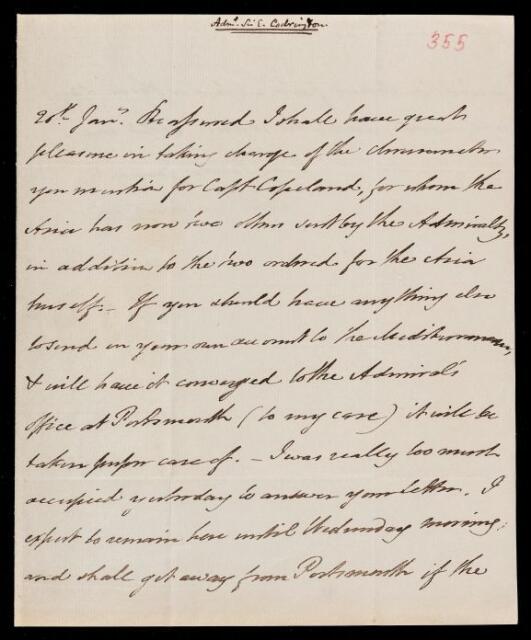 Adm.l Sir E. Codrington
355
20th Jany. Be assured I shall have great
pleasure in taking charge of the chronometer
you mention for Capt Copeland, for whom the
Asia has now two others sent by the Admiralty,
in addition to the two ordered for the Asia
herself. – If you should have any thing else
to send on your own account to the Mediterranean,
& will have it conveyed to the Admiral's
office at Portsmouth (to my care) it will be
taken proper care of. – I was really too much
occupied yesterday to answer your letter. I
expect to remain here until Wednesday morning;
and shall get away from Portsmouth if the